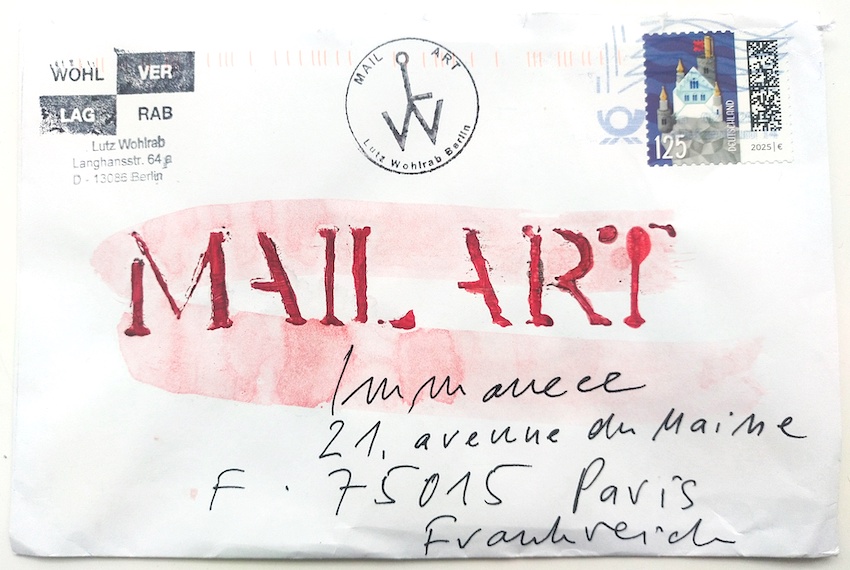 WOHL VER
LAG RAB
Lutz Wohlrab
Langhansstr. 64 a
D - 13086 Berlin
MAIL ART
Lutz Wohlrab Berlin
125
DEUTSCHLAND
2025 | €
MAIL ART
Immanece
21, avenue du Maine
F. 75015 Paris
Frankreich